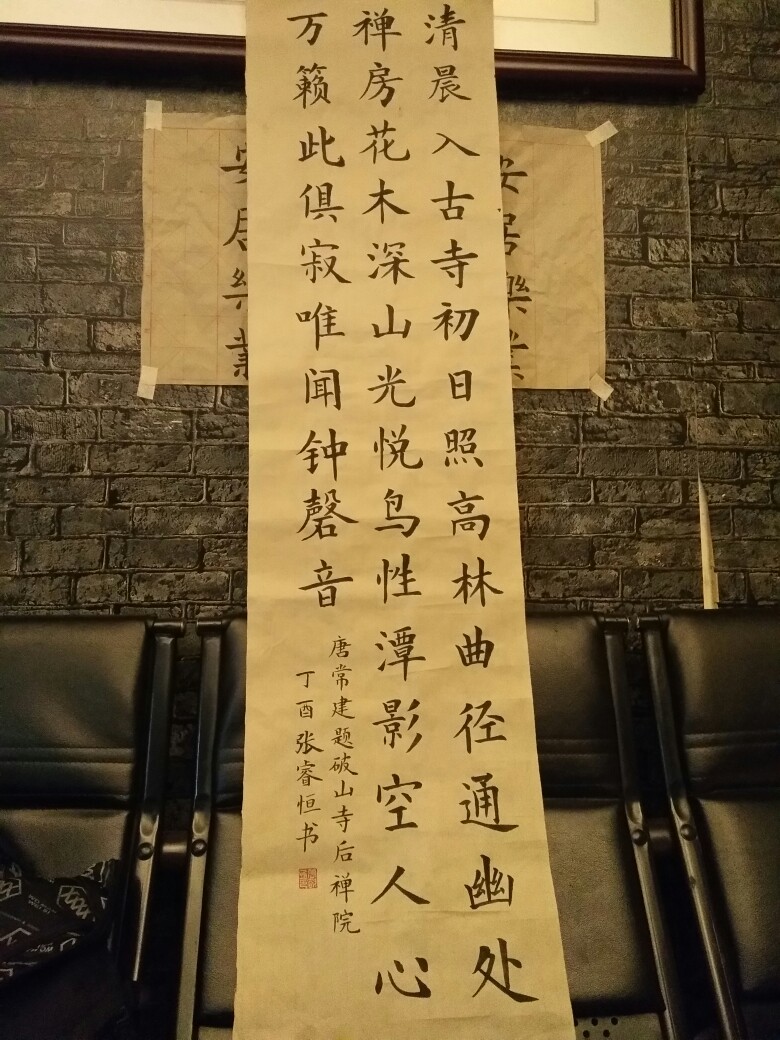 清晨入古寺初日照高林曲径通幽处
禅房花木深山光悦鸟性潭影空人心
万籁此俱寂唯闻钟磬音
唐常建题破山寺后禅院
丁酉张睿恒书
安居樂業
安居樂業